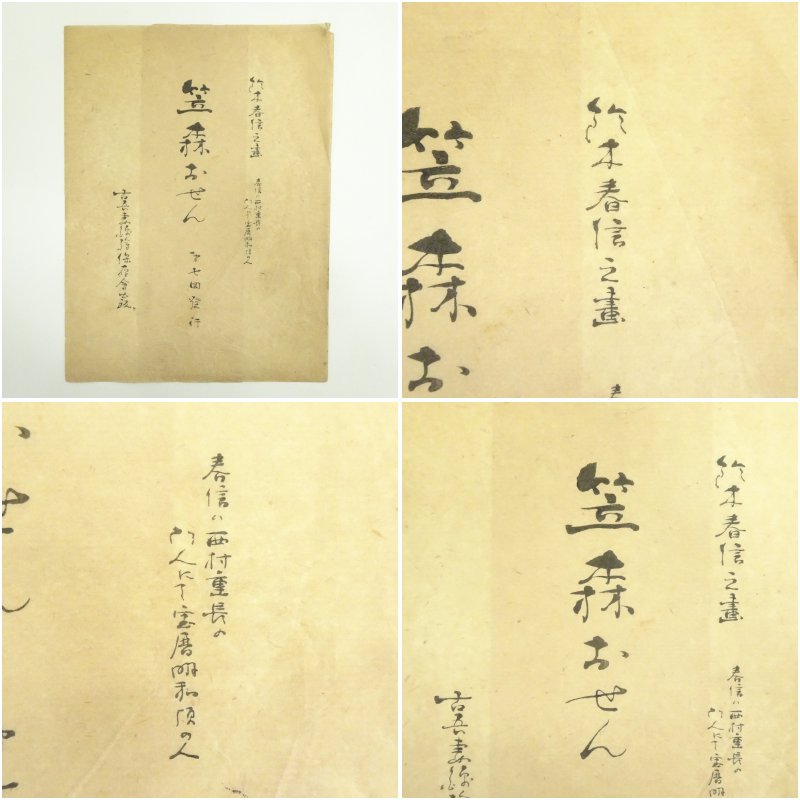 鈴木春信之畫
春信ハ西村重長の
門人にて宝暦明和頃の人
笠森おせん
第七回發行
古吾妻錦繪保存會蔵
鈴木春信之畫
笠森お
春信ハ西村重長の
門人にて宝暦明和頃の人
鈴木春信之畫
春信ハ西村重長の
門人にて宝暦明
笠森おせん
古吾妻錦